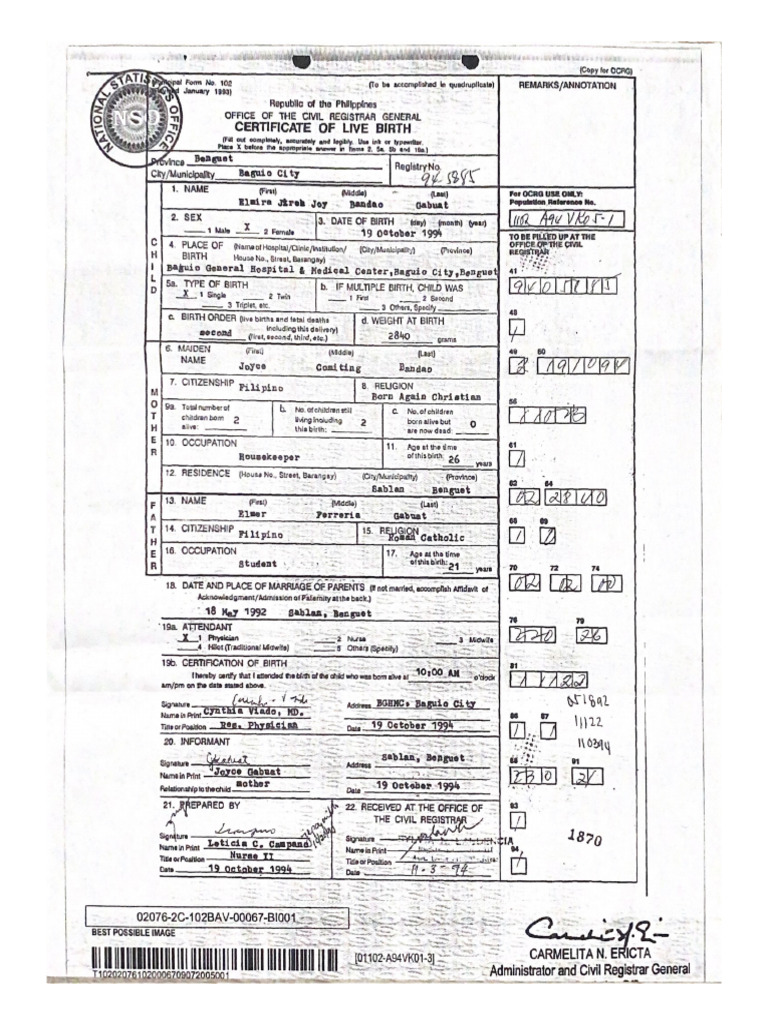 (Copy for OCRG)
Municipal Form No. 102
January 1993)
(To be accomplished in quadruplicate)
REMARKS/ANNOTATION
NATIONAL STATISTICS OFFICE
NSO
Republic of the Philippines
OFFICE OF THE CIVIL REGISTRAR GENERAL
CERTIFICATE OF LIVE BIRTH
(Fill out completely, accurately and legibly. Use ink or typewriter.
Place X before the appropriate answer in Items 2, 5a, 5b and 19a.)
Province Benguet
City/Municipality Baguio City
Registry No. 94 5885
1. NAME (First) (Middle) (Last)
Elmira Jireh Joy Bandao Gabuat
For OCRG USE ONLY:
Population Reference No.
1102 A94VK05-1
2. SEX
1 Male X 2 Female
3. DATE OF BIRTH (day) (month) (year)
19 October 1994
TO BE FILLED UP AT THE
OFFICE OF THE CIVIL
REGISTRAR
CHILD
4. PLACE OF BIRTH (Name of Hospital/Clinic/Institution/ (City/Municipality) (Province)
House No., Street, Barangay)
Baguio General Hospital & Medical Center, Baguio City, Benguet
41
9405885
5a. TYPE OF BIRTH
X 1 Single 2 Twin
3 Triplet, etc.
b. IF MULTIPLE BIRTH, CHILD WAS
1 First 2 Second
3 Others, Specify
c. BIRTH ORDER (live births and fetal deaths
including this delivery)
second (first, second, third, etc.)
d. WEIGHT AT BIRTH
2840 grams
48
1
6. MAIDEN NAME (First) (Middle) (Last)
Joyce Comiting Bandao
49 50
2 191094
MOTHER
7. CITIZENSHIP Filipino
8. RELIGION
Born Again Christian
9a. Total number of children born alive: 2
b. No. of children still living including this birth: 2
c. No. of children born alive but are now dead: 0
56
10. OCCUPATION
Housekeeper
11. Age at the time of this birth: 26 years
61
1
12. RESIDENCE (House No., Street, Barangay) (City/Municipality) (Province)
Sablan Benguet
62 64
02 2840
FATHER
13. NAME (First) (Middle) (Last)
Elmer Ferreria Gabuat
14. CITIZENSHIP Filipino
15. RELIGION
Roman Catholic
68 69
1
16. OCCUPATION
Student
17. Age at the time of this birth: 21 years
70 72 74
02 02 00
18. DATE AND PLACE OF MARRIAGE OF PARENTS (If not married, accomplish Affidavit of
Acknowledgment/Admission of Paternity at the back.)
18 May 1992 Sablan, Benguet
19a. ATTENDANT
X 1 Physician 2 Nurse 3 Midwife
4 Hilot (Traditional Midwife) 5 Others (Specify)
76 79
220 26
19b. CERTIFICATION OF BIRTH
I hereby certify that I attended the birth of the child who was born alive at 10:00 AM o'clock
am/pm on the date stated above.
81
11122
Signature
Name in Print Cynthia Viado, MD.
Title or Position Res. Physician
Address BGHMC: Baguio City
Date 19 October 1994
051892
11122
110394
86 87
1 1
20. INFORMANT
Signature JGabuat
Name in Print Joyce Gabuat
Relationship to the child mother
Address Sablan, Benguet
Date 19 October 1994
88 91
230 21
21. PREPARED BY
Signature
Name in Print Leticia C. Campano
Title or Position Nurse II
Date 19 October 1994
22. RECEIVED AT THE OFFICE OF
THE CIVIL REGISTRAR
Signature
Name in Print
Title or Position
Date 11-3-94
93
1
1870
94
1
02076-2C-102BAV-00067-BI001
BEST POSSIBLE IMAGE
T102020761020006709072005001
[01102-A94VK01-3]
CARMELITA N. ERICTA
Administrator and Civil Registrar General